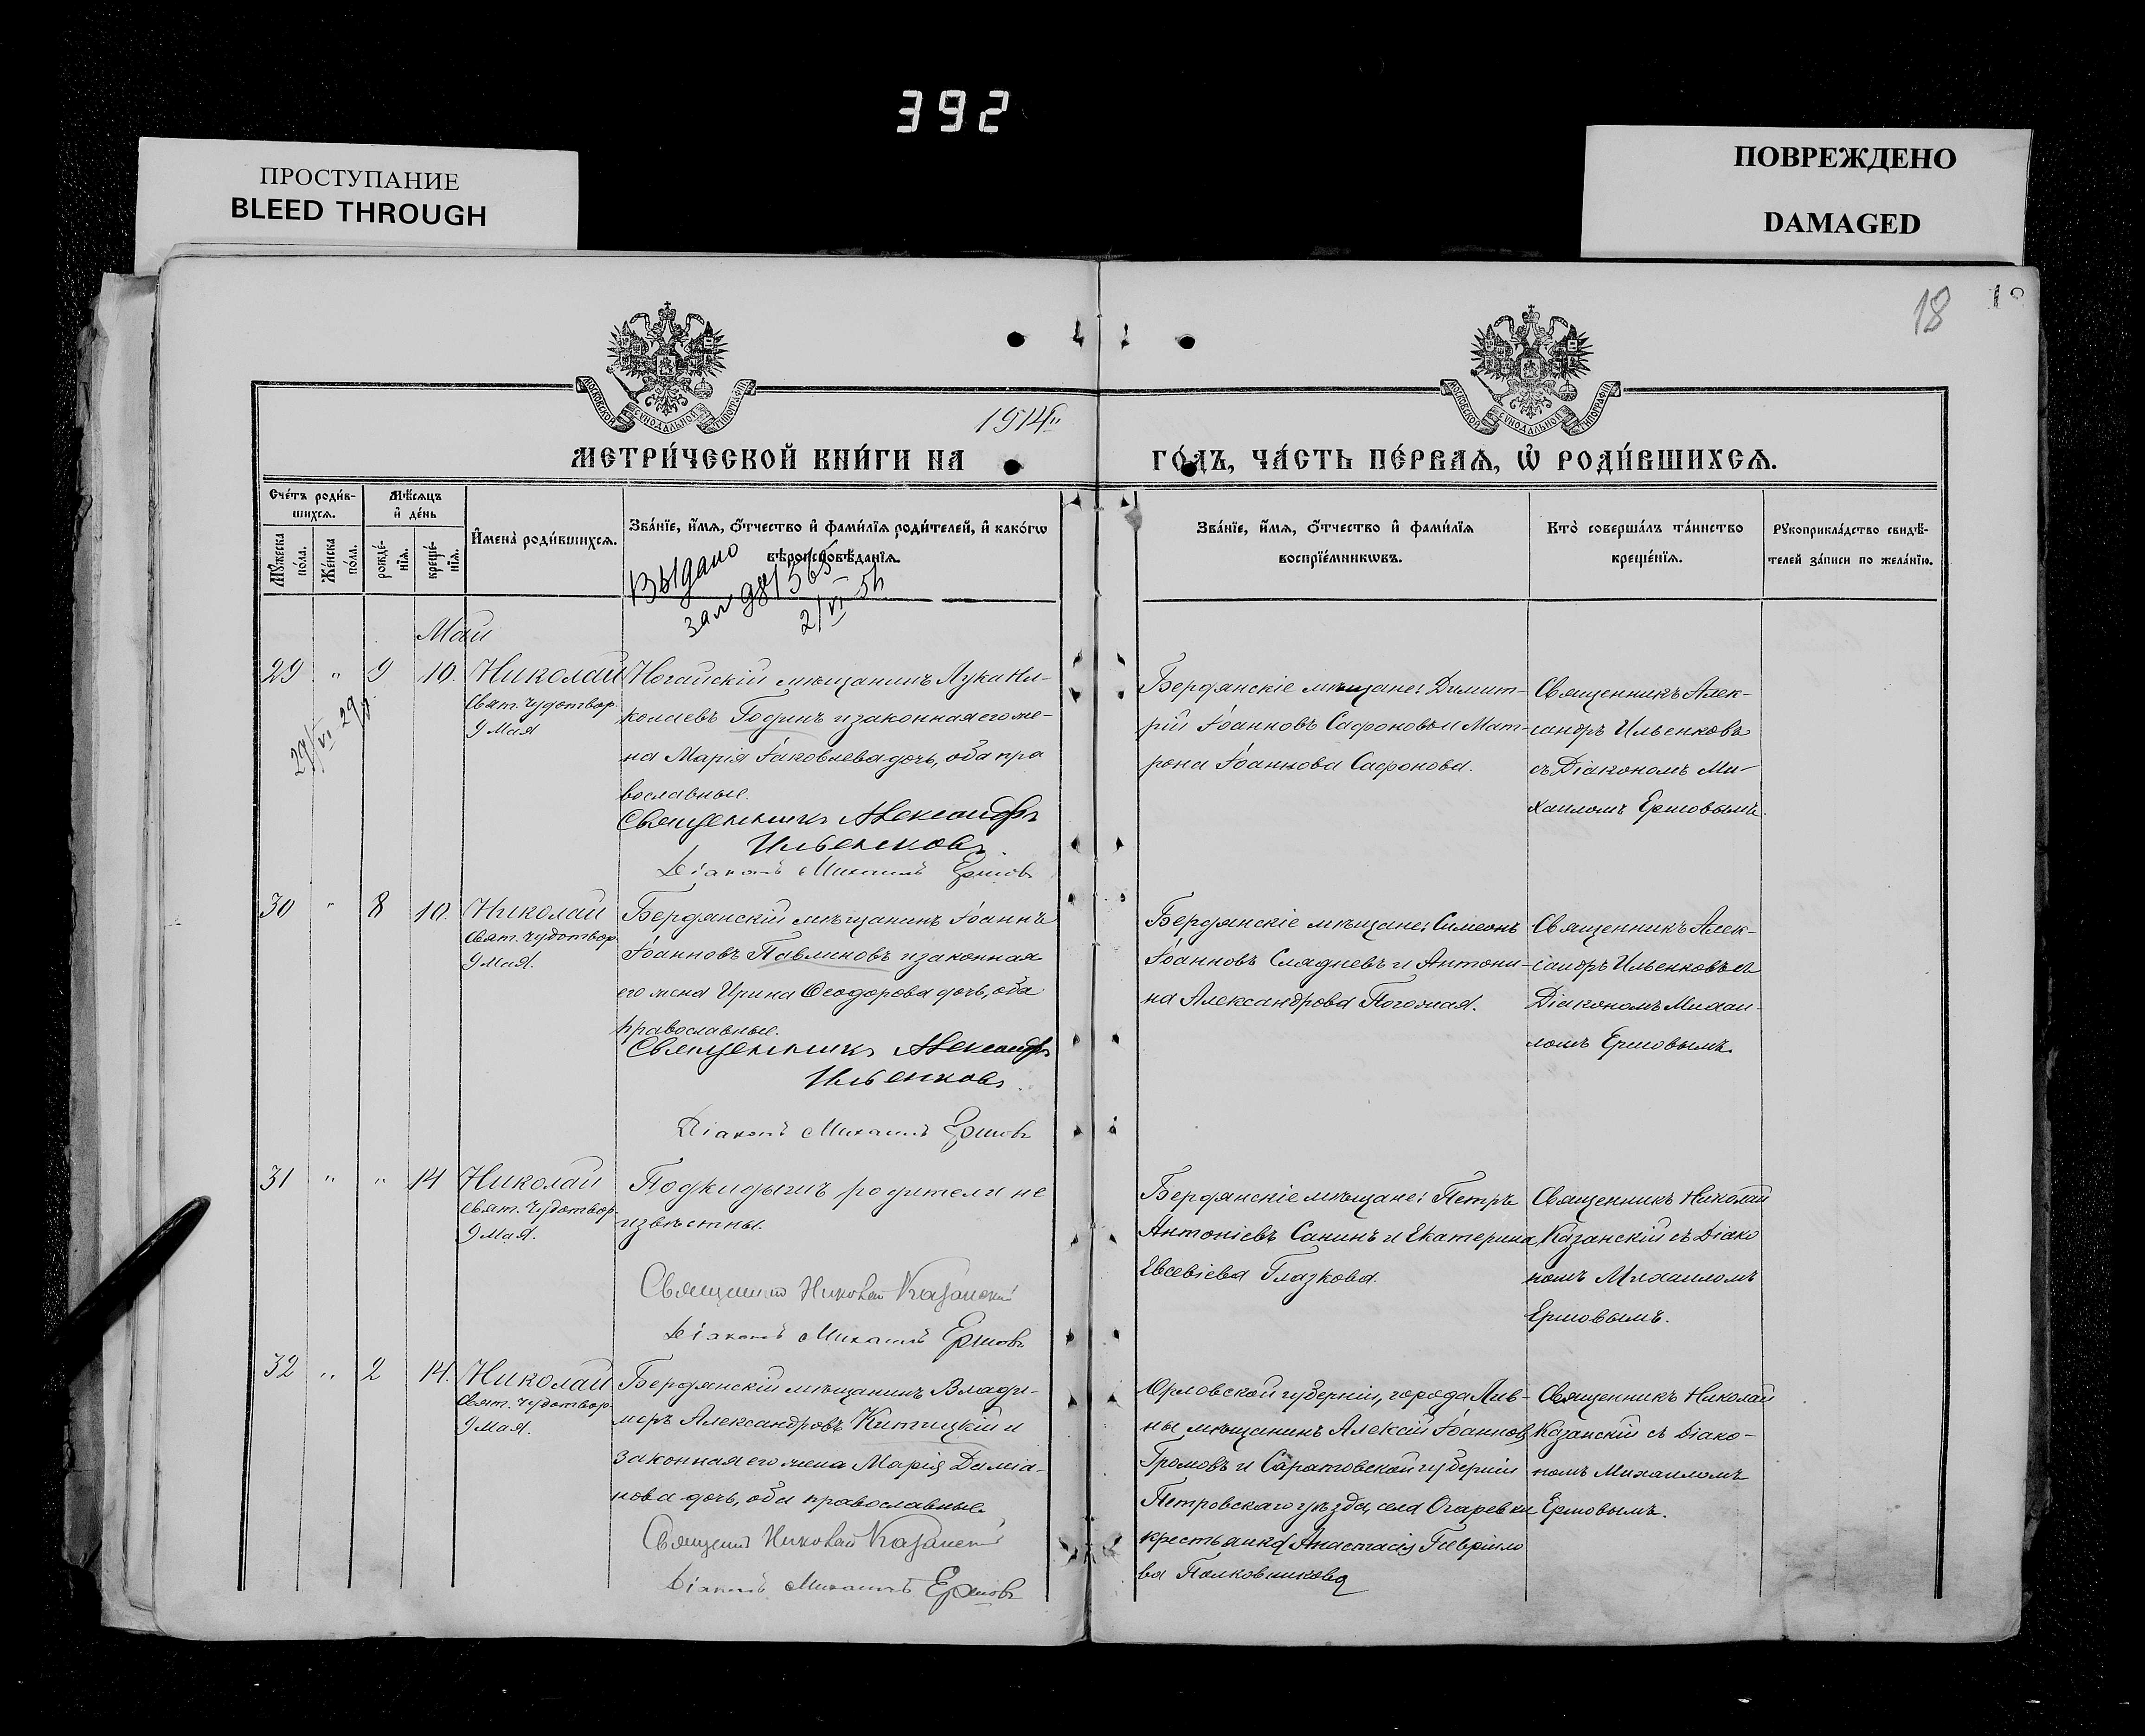 392
ПРОСТУПАНИЕ
BLEED THROUGH
ПОВРЕЖДЕНО
DAMAGED
18
МОСКОВСКОЙ СѴНОДАЛЬНОЙ ТИПОГРАФІИ
МОСКОВСКОЙ СѴНОДАЛЬНОЙ ТИПОГРАФІИ
1914
МЕТРИ́ЧЕСКОЙ КНИ́ГИ НА ГО́ДЪ, ЧА́СТЬ ПЕ́РВАѦ, Ѡ҆ РОДИ́ВШИХСѦ.
Сче́тъ роди́в-
шихсѧ.
Мѣ́сѧцъ
и҆ де́нь
Мꙋ́жеска
по́ла.
Же́нска
по́ла.
рожде́-
нїѧ.
креще́-
нїѧ.
И҆мена̀ роди́вшихсѧ.
Зва́нїе, и҆́мѧ, ѻ҆́тчество и҆ фами́лїѧ роди́телей, и҆ како́гѡ
вѣроисповѣ́данїѧ.
Зва́нїе, и҆́мѧ, ѻ҆́тчество и҆ фами́лїѧ
воспрїе́мникѡвъ.
Кто̀ соверша́лъ та́инство
креще́нїѧ.
Рꙋкоприкла́дство свидѣ́-
телей за́писи по жела́нїю.
Выдано
Май
29 " 9 10.
Николай
Свят. Чудотвор.
9 Мая
Ногайскій мѣщанинъ Лука Ни-
колаевъ Годинъ и законная его же-
на Марія Іаковлева дочь, оба пра
вославные.
Священникъ Александръ
Ильенковъ.
Діаконъ Михаилъ Ершовъ
Бердянскіе мѣщане: Димит-
рій Іоанновъ Сафоновъ и Мат-
рона Іоаннова Сафонова.
Священникъ Алек-
сандръ Ильенковъ
съ Діакономъ Ми-
хаиломъ Ершовымъ.
30 " 8 10.
Николай
Свят. Чудотвор.
9 Мая.
Бердянскій мѣщанинъ Іоаннъ
Іоанновъ Павлиновъ и законная
его жена Ирина Ѳеодорова дочь, оба
православные.
Священникъ Александръ
Ильенковъ.
Діаконъ Михаилъ Ершовъ
Бердянскіе мѣщане: Симеонъ
Іоанновъ Слядневъ и Антони-
на Александрова Погожая.
Священникъ Алек-
сандръ Ильенковъ съ
Діакономъ Михаи-
ломъ Ершовымъ.
31 " " 14
Николай
Свят. Чудотвор.
9 Мая.
Подкидышъ родители не
извѣстны.
Священникъ Николай Казанскій
Діаконъ Михаилъ Ершовъ
Бердянскіе мѣщане: Петръ
Антоніевъ Санинъ и Екатерина
Евсевіева Глазкова.
Священникъ Николай
Казанскій съ Діако
номъ Михаиломъ
Ершовымъ.
32 " 2 14.
Николай
Свят. Чудотвор.
9 Мая.
Бердянскій мѣщанинъ Влади-
міръ Александровъ Китицкій и
законная его жена Марія Даміа-
нова дочь, оба православные
Священникъ Николай Казанскій
Діаконъ Михаилъ Ершовъ
Орловской губерніи, города Лив-
ны мѣщанинъ Алексій Іоанновъ
Громовъ и Саратовской губерніи
Петровскаго уѣзда, села Огаревки
крестьянка Анастасія Гавріило
ва Полковникова
Священникъ Николай
Казанскій съ Діако-
номъ Михаиломъ
Ершовымъ.